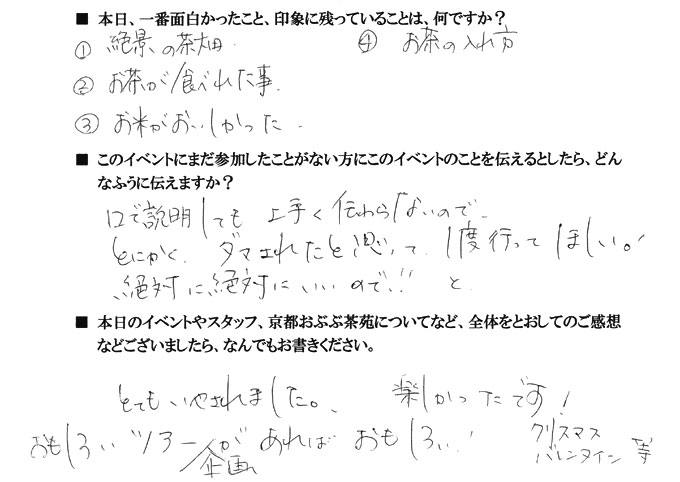 ■ 本日、一番面白かったこと、印象に残っていることは、何ですか？
① 絶景の茶畑.
④ お茶の入れ方
② お茶が食べれた事.
③ お米がおいしかった.
■ このイベントにまだ参加したことがない方にこのイベントのことを伝えるとしたら、どん
なふうに伝えますか？
口で説明しても 上手く伝わらないので、
とにかく、ダマされたと思って、1度行ってほしい。！
絶対に絶対にいいので！！ と
■ 本日のイベントやスタッフ、京都おぶぶ茶苑についてなど、全体をとおしてのご感想
などございましたら、なんでもお書きください。
とてもいやされました。、 楽しかったです！
おもしろいツアー企画があれば おもしろい！ クリスマス バレンタイン 等